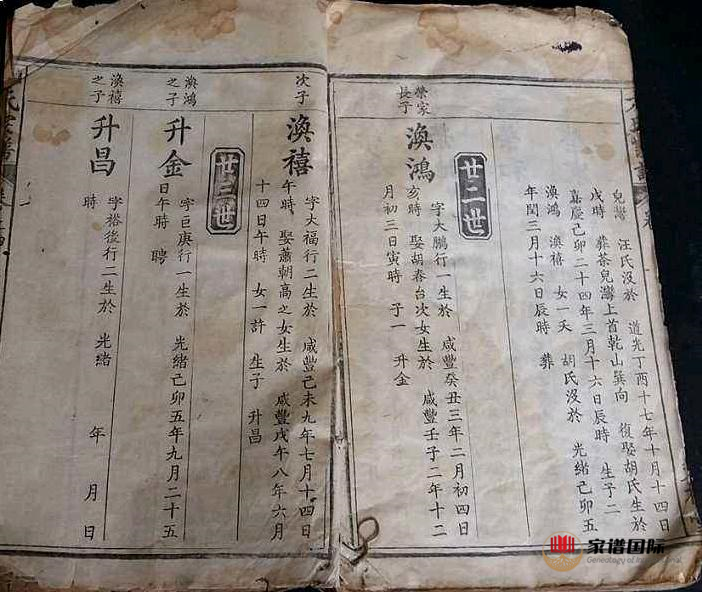 兒灣 汪氏没於 道光丁酉十七年十月十四日
戌時 葬茶兒灣上首乾山巽向 復娶胡氏生於
嘉慶己卯二十四年三月十六日辰時 生子二
渙鴻 渙禧 女一夭 胡氏没於 光緒己卯五
年閏三月十六日辰時 葬
廿二世
榮家
長子
渙鴻
字大鵬行一生於 咸豐癸丑三年二月初四日
亥時 娶胡春台次女生於 咸豐壬子二年十二
月初三日寅時 子一 升金
次子
渙禧
字大福行二生於 咸豐己未九年七月十四日
午時 娶蕭朝高之女生於 咸豐戊午八年六月
十四日午時 女一許 生子 升昌
廿三世
渙鴻
之子
升金
字巨庚行一生於 光緒己卯五年九月二十五
日午時 聘
渙禧
之子
升昌
字裕後行二生於 光緒 年 月 日
時
家谱国际
Genealogy of International